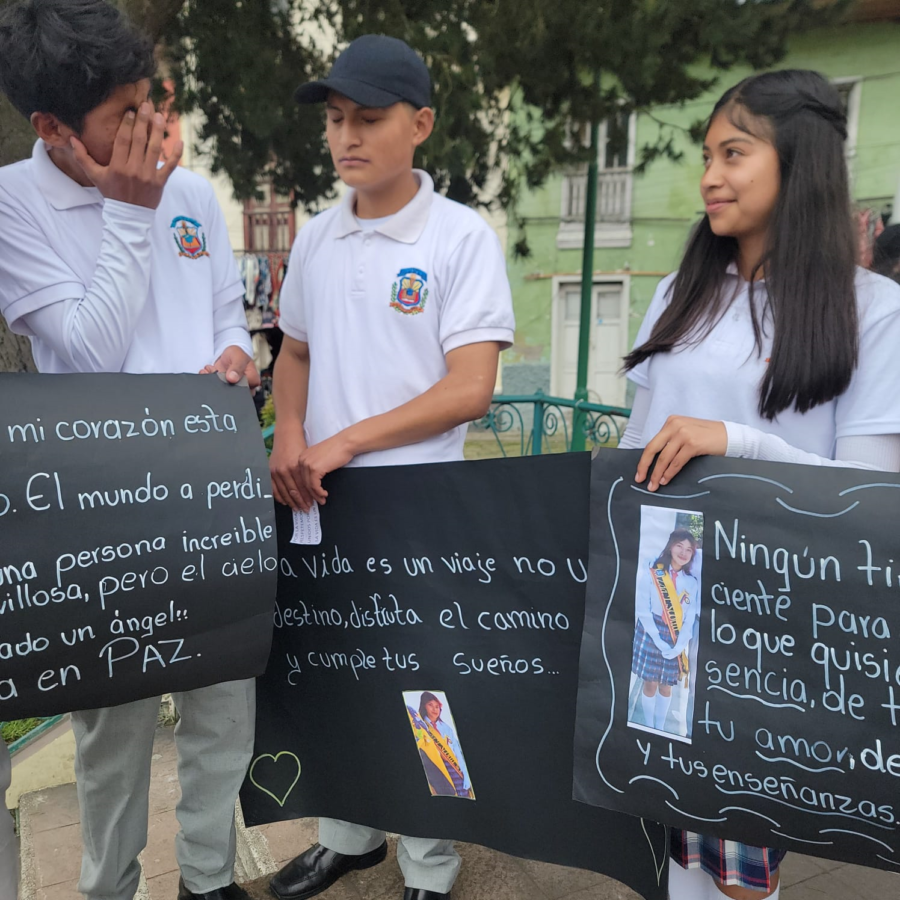 mi corazón esta
o. El mundo a perdi_
una persona increible
villosa, pero el cielo
ado un ángel!!
a en PAZ.
a vida es un viaje no u
destino, disfruta el camino
y cumple tus sueños...
Ningún ti
ciente para
lo que quisi
sencia, de t
tu amor, de
y tus enseñanzas.